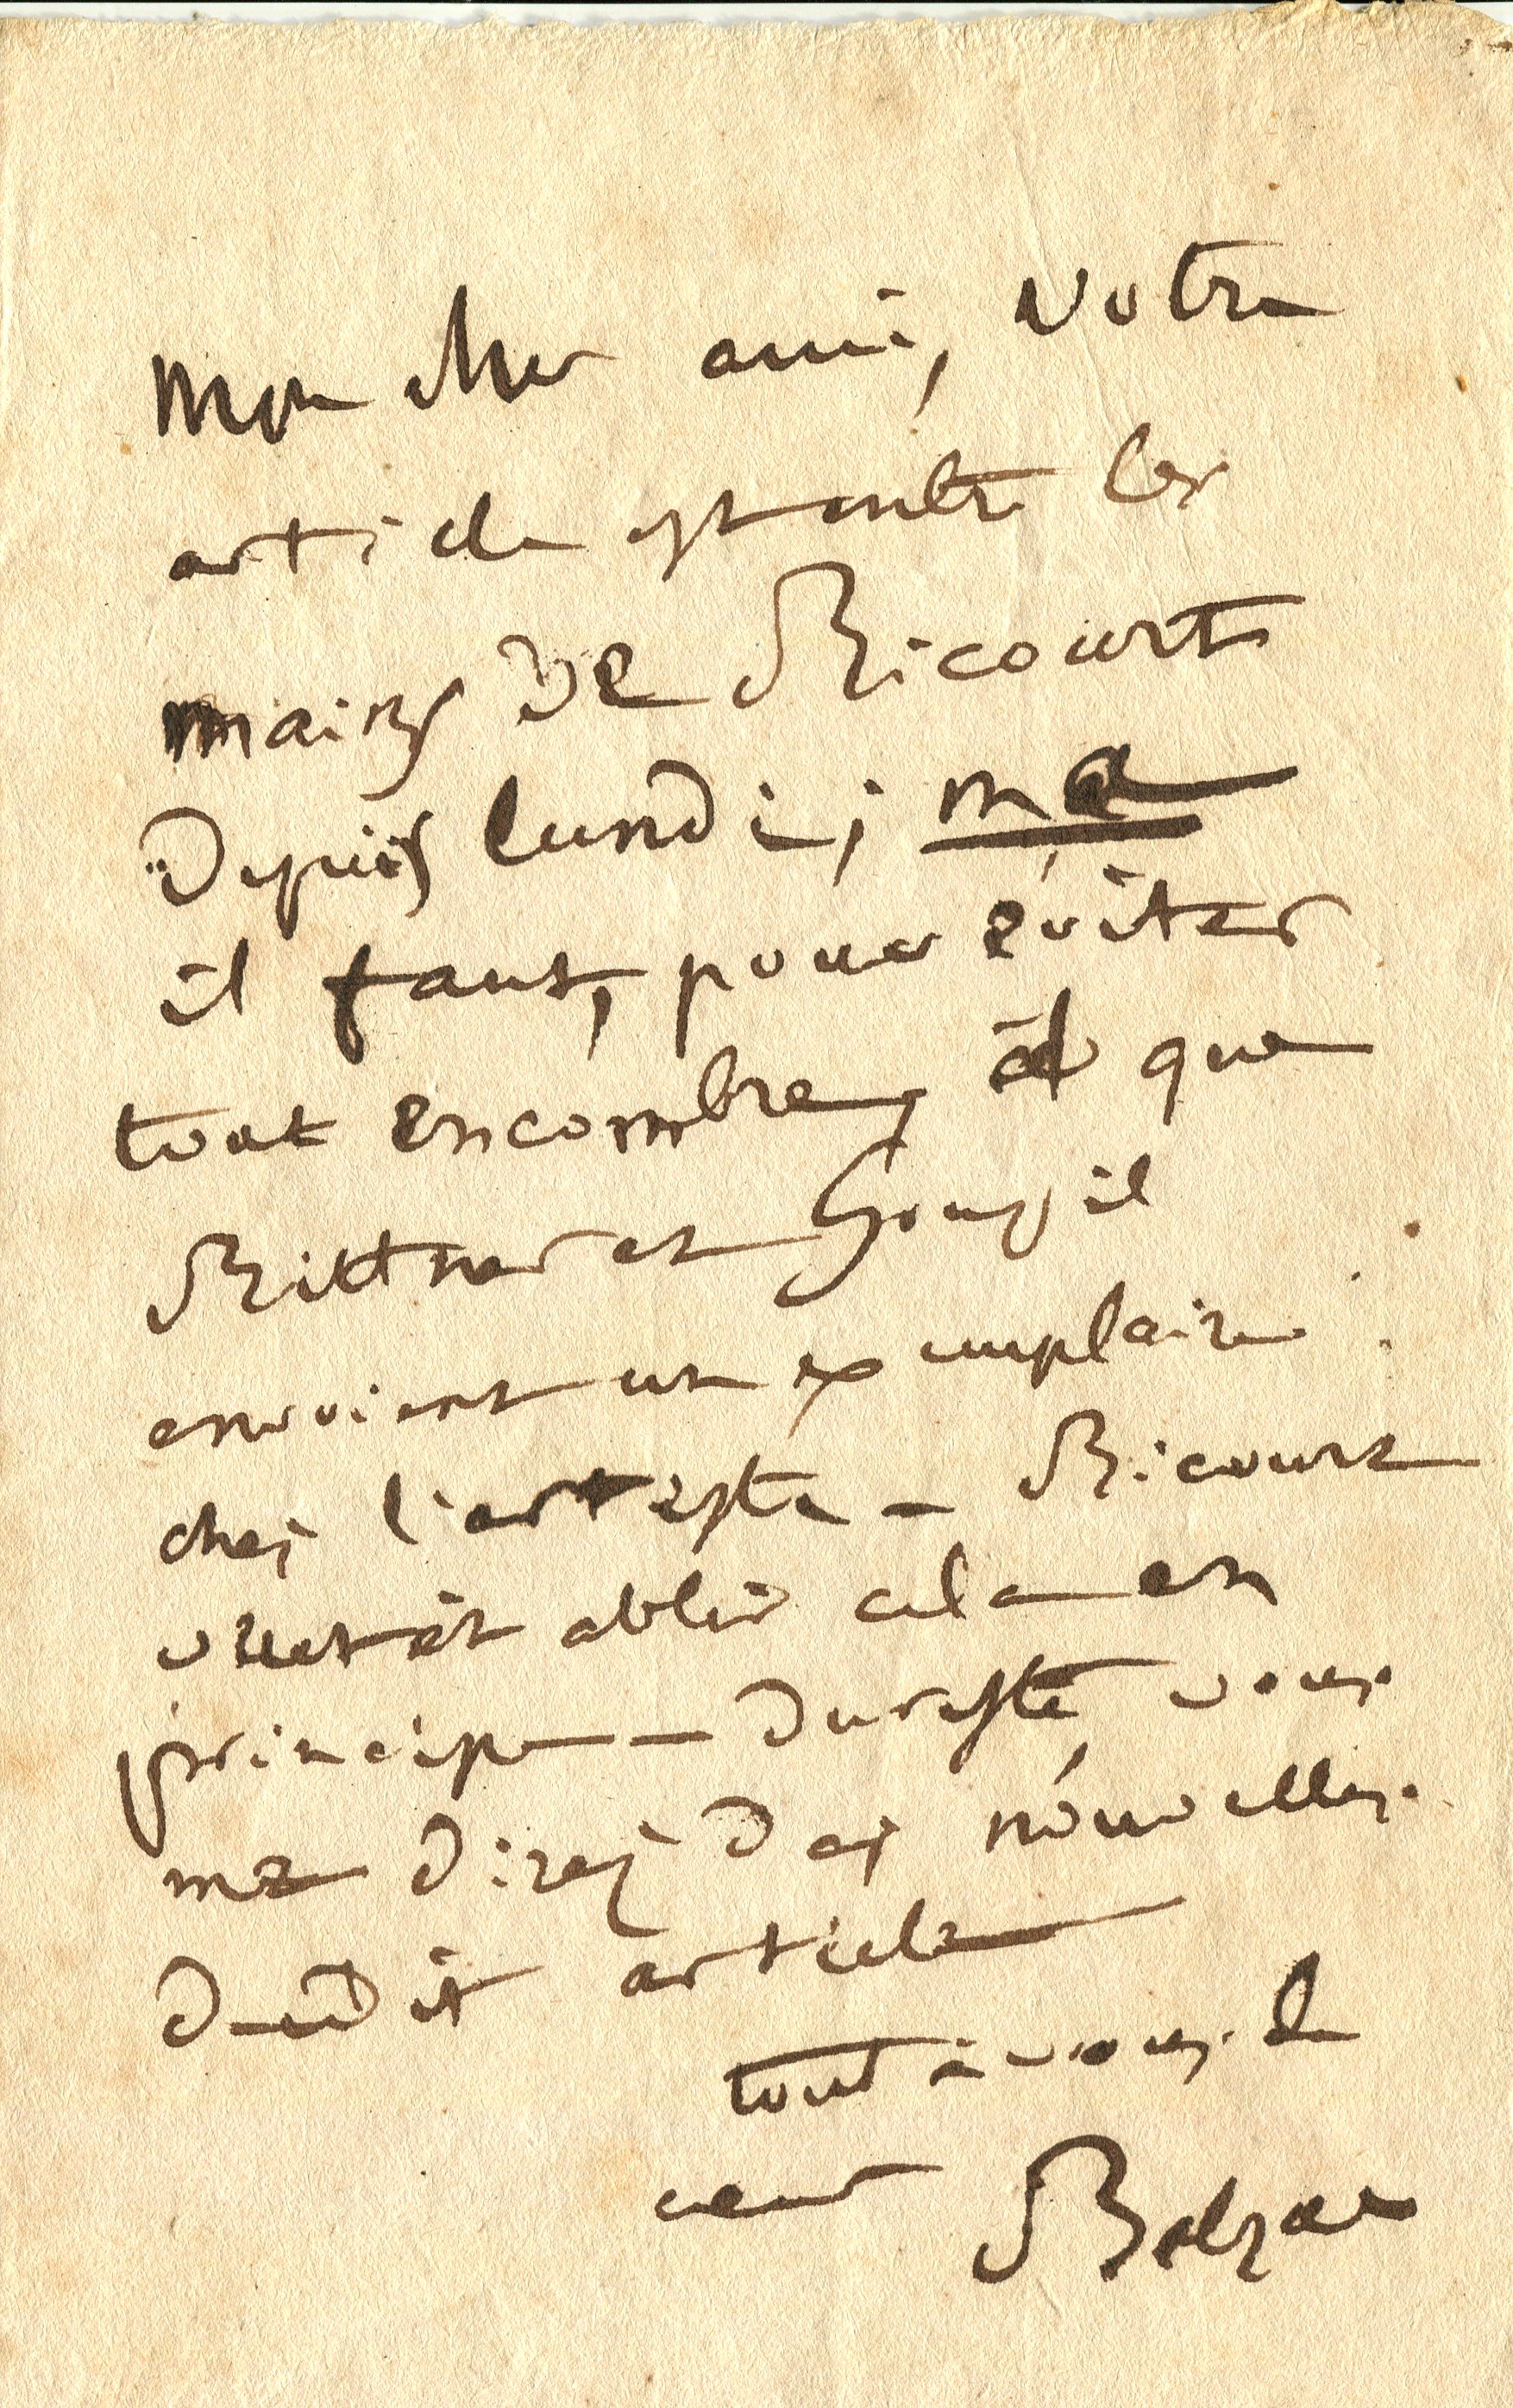 Mon cher ami, votre
article est entre les
mains de Ricourt
Depuis lundi,
il faut, pour éviter
tout encombre, que
Rittner et Goupil
envoient un exemplaire
chez l'artiste – Ricourt
veut établir cela en
principe – Du reste, vous
me direz des nouvelles
dudit article
tout à vous de
cœur Balzac